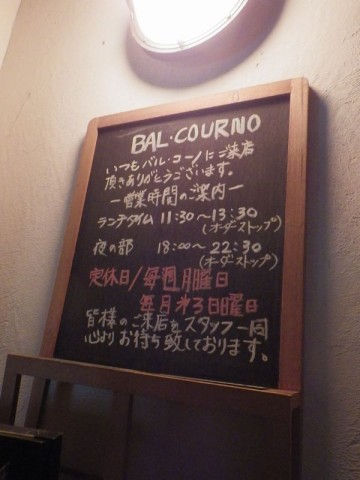 BAL・COURNO
いつもバル・コーノにご来店
頂きありがとうございます。
ー営業時間のご案内ー
ランチタイム 11:30〜13:30
(オーダーストップ)
夜の部 18:00〜22:30
(オーダーストップ)
定休日/毎週月曜日
毎月第3日曜日
皆様のご来店をスタッフ一同
心よりお待ち致しております。